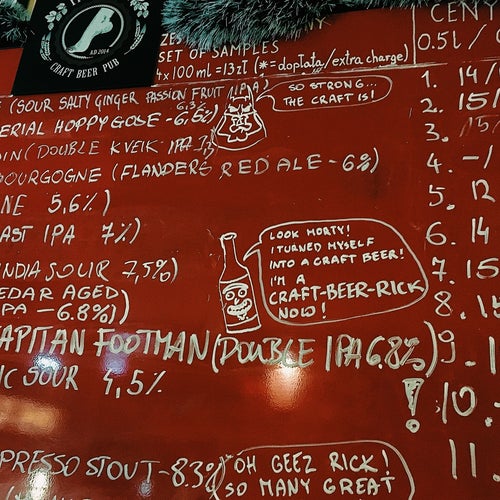 A.D 2014
CRAFT BEER PUB
SET OF SAMPLES
4x100 mL = 13zł (* = dopłata/extra charge)
CENY
0.5l /
(SOUR SALTY GINGER PASSION FRUIT IPA)
6,3%
SO STRONG...
THE CRAFT IS!
1. 14/
ERIAL HOPPY GOSE - 6,6%)
2. 15/
DIN (DOUBLE KVEIK IPA
3. 15
BOURGOGNE (FLANDERS RED ALE - 6%)
4. -/
NE 5,6%)
5. 12
AST IPA 7%)
6. 14
LOOK MORTY!
I TURNED MYSELF
INTO A CRAFT BEER!
I'M A
CRAFT-BEER-RICK
NOW!
INDIA SOUR 7,5%)
7. 15
EDAR AGED)
PA - 6.8%)
8. 15
CAPITAN FOOTMAN (DOUBLE IPA 6.8%)
9.
IC SOUR 4,5%
! 10.
11.
PRESSO STOUT - 8.3%
OH GEEZ RICK!
SO MANY GREAT